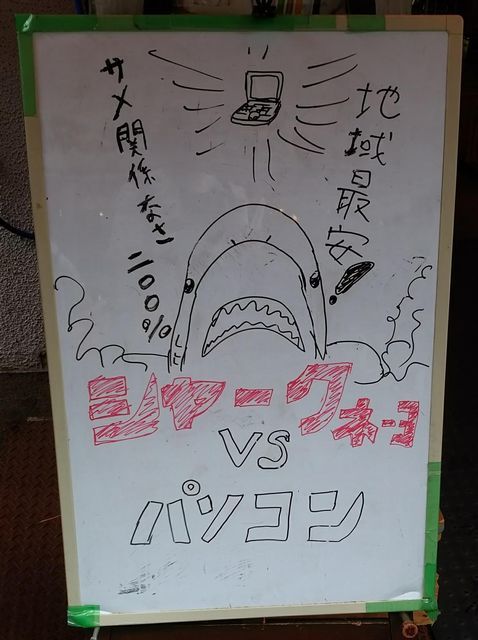 地域最安！
サメ関係なさ二〇〇%
シャークネーヨ
VS
パソコン